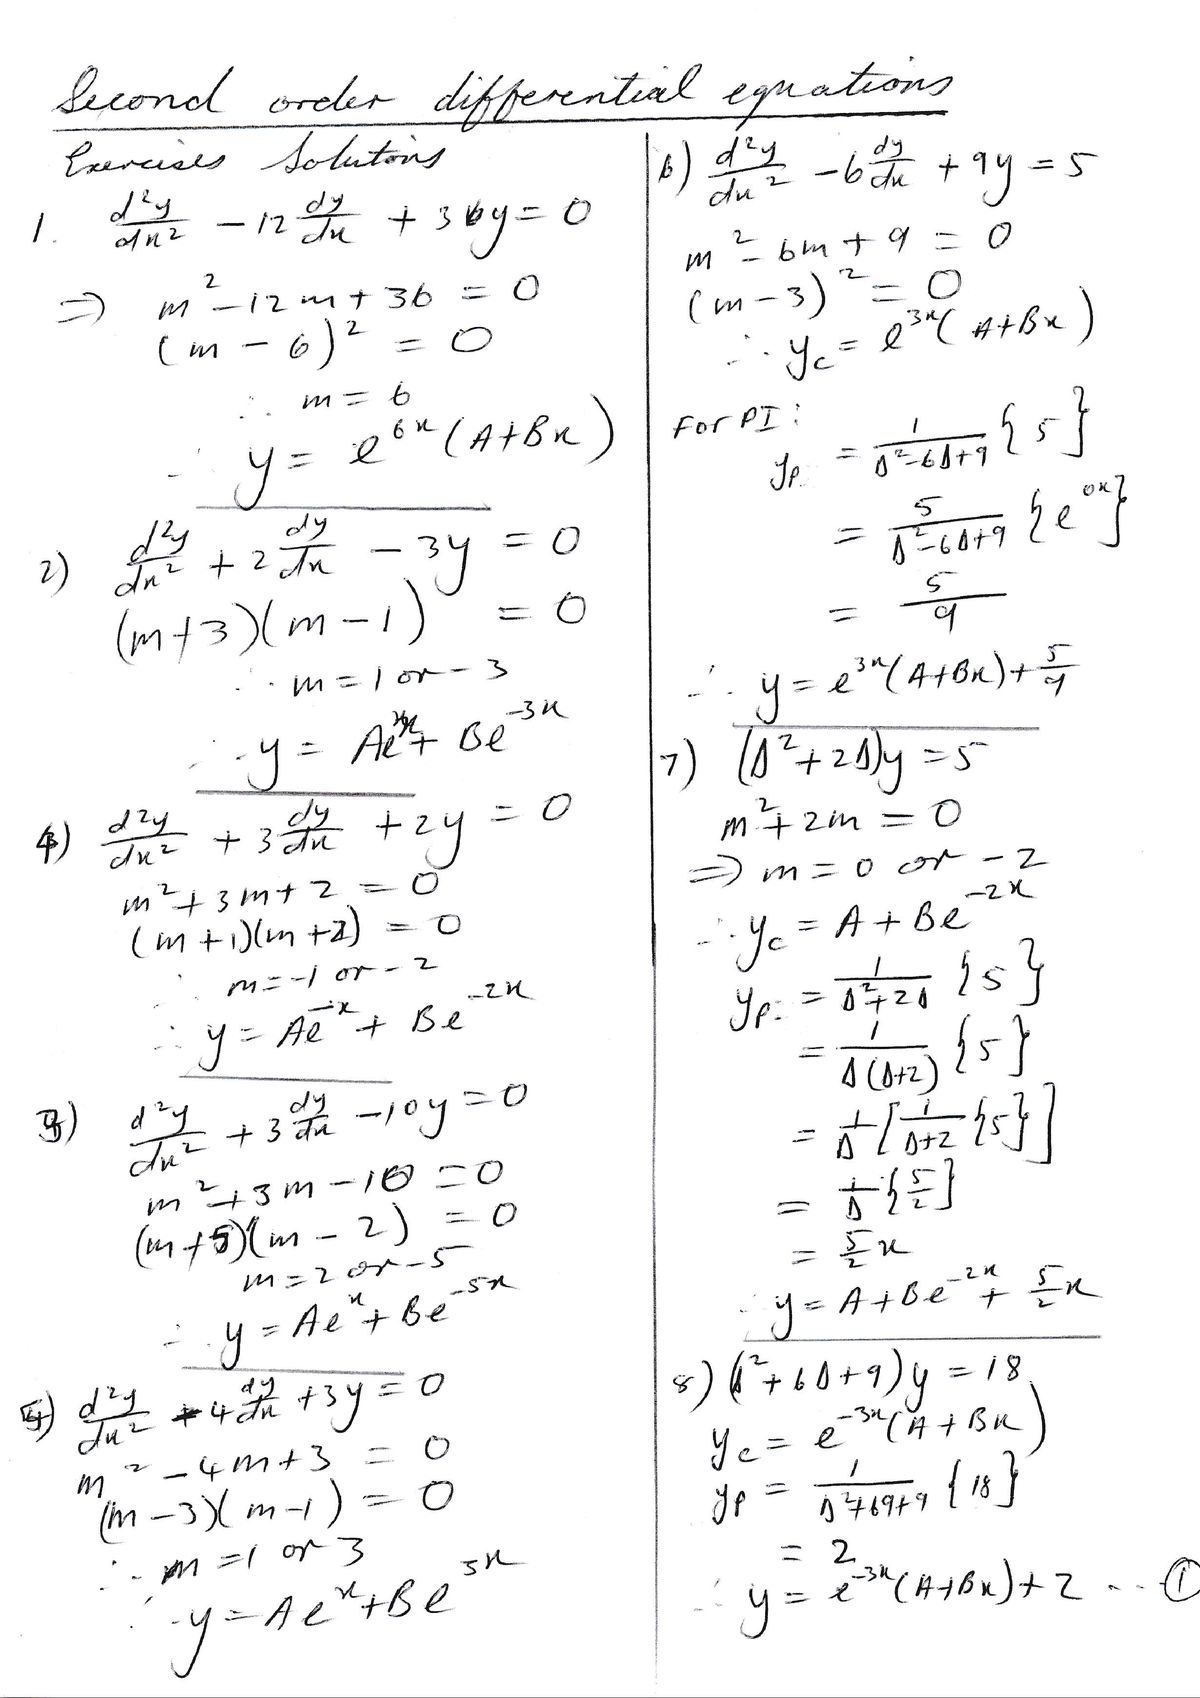 Second order differential equations
Exercises Solutions
1. d²y/dx² - 12 dy/dx + 36y = 0
⇒ m² - 12m + 36 = 0
(m - 6)² = 0
∴ m = 6
∴ y = e^{6x}(A+Bx)
2) d²y/dx² + 2 dy/dx - 3y = 0
(m+3)(m-1) = 0
∴ m = 1 or -3
∴ y = Ae^{x} + Be^{-3x}
4) d²y/dx² + 3 dy/dx + 2y = 0
m² + 3m + 2 = 0
(m+1)(m+2) = 0
∴ m = -1 or -2
∴ y = Ae^{-x} + Be^{-2x}
d²y/dx² + 3 dy/dx - 10y = 0
m² + 3m - 10 = 0
(m+5)(m-2) = 0
m = 2 or -5
∴ y = Ae^{x} + Be^{-5x}
5) d²y/dx² - 4 dy/dx + 3y = 0
m² - 4m + 3 = 0
(m-3)(m-1) = 0
∴ m = 1 or 3
∴ y = Ae^{x} + Be^{3x}
6) d²y/dx² - 6 dy/dx + 9y = 5
m² - 6m + 9 = 0
(m-3)² = 0
∴ y_c = e^{3x}(A+Bx)
For PI:
y_p = 1/(D²-6D+9) {5}
= 5/(D²-6D+9) {e^{0x}}
= 5/9
∴ y = e^{3x}(A+Bx) + 5/9
7) (D²+2D)y = 5
m² + 2m = 0
⇒ m = 0 or -2
∴ y_c = A + Be^{-2x}
y_p = 1/(D²+2D) {5}
= 1/(D(D+2)) {5}
= 1/D [1/(D+2) {5}]
= 1/D {5/2}
= 5/2 x
∴ y = A + Be^{-2x} + 5/2 x
8) (D²+6D+9)y = 18
y_c = e^{-3x}(A+Bx)
y_p = 1/(D²+69+9) {18}
= 2
∴ y = e^{-3x}(A+Bx) + 2 -- ①